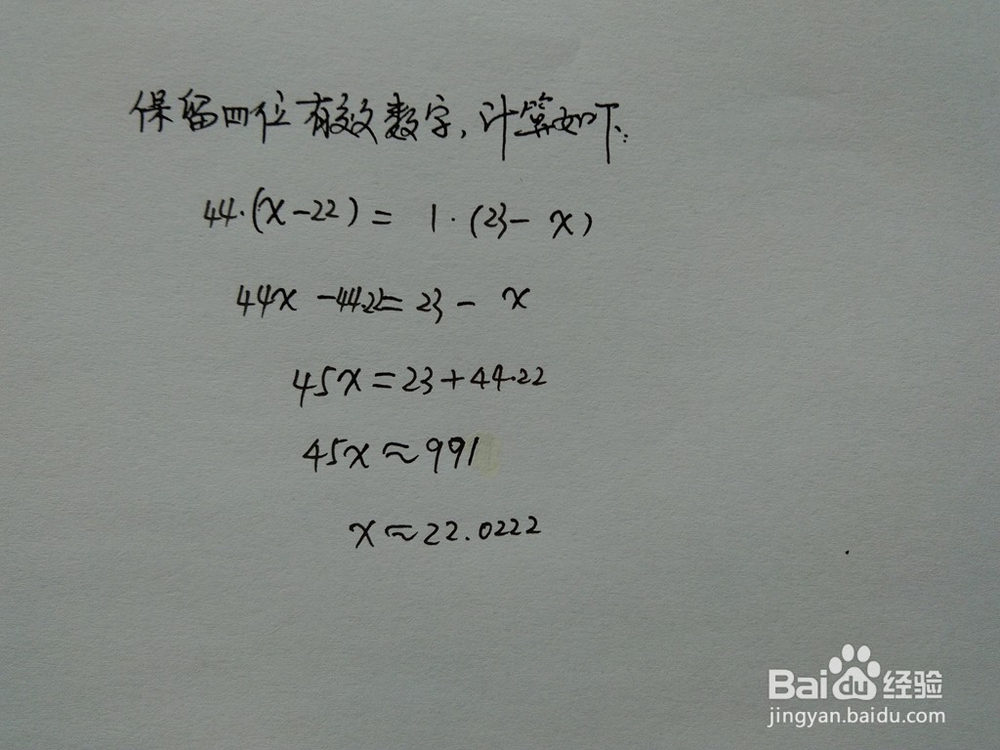 保留四位有效数字,计算如下:
44·(x-22)= 1·(23-x)
44x-44·22=23-x
45x=23+44·22
45x≈991
x≈22.0222
Baidu经验
jingyan.baidu.com